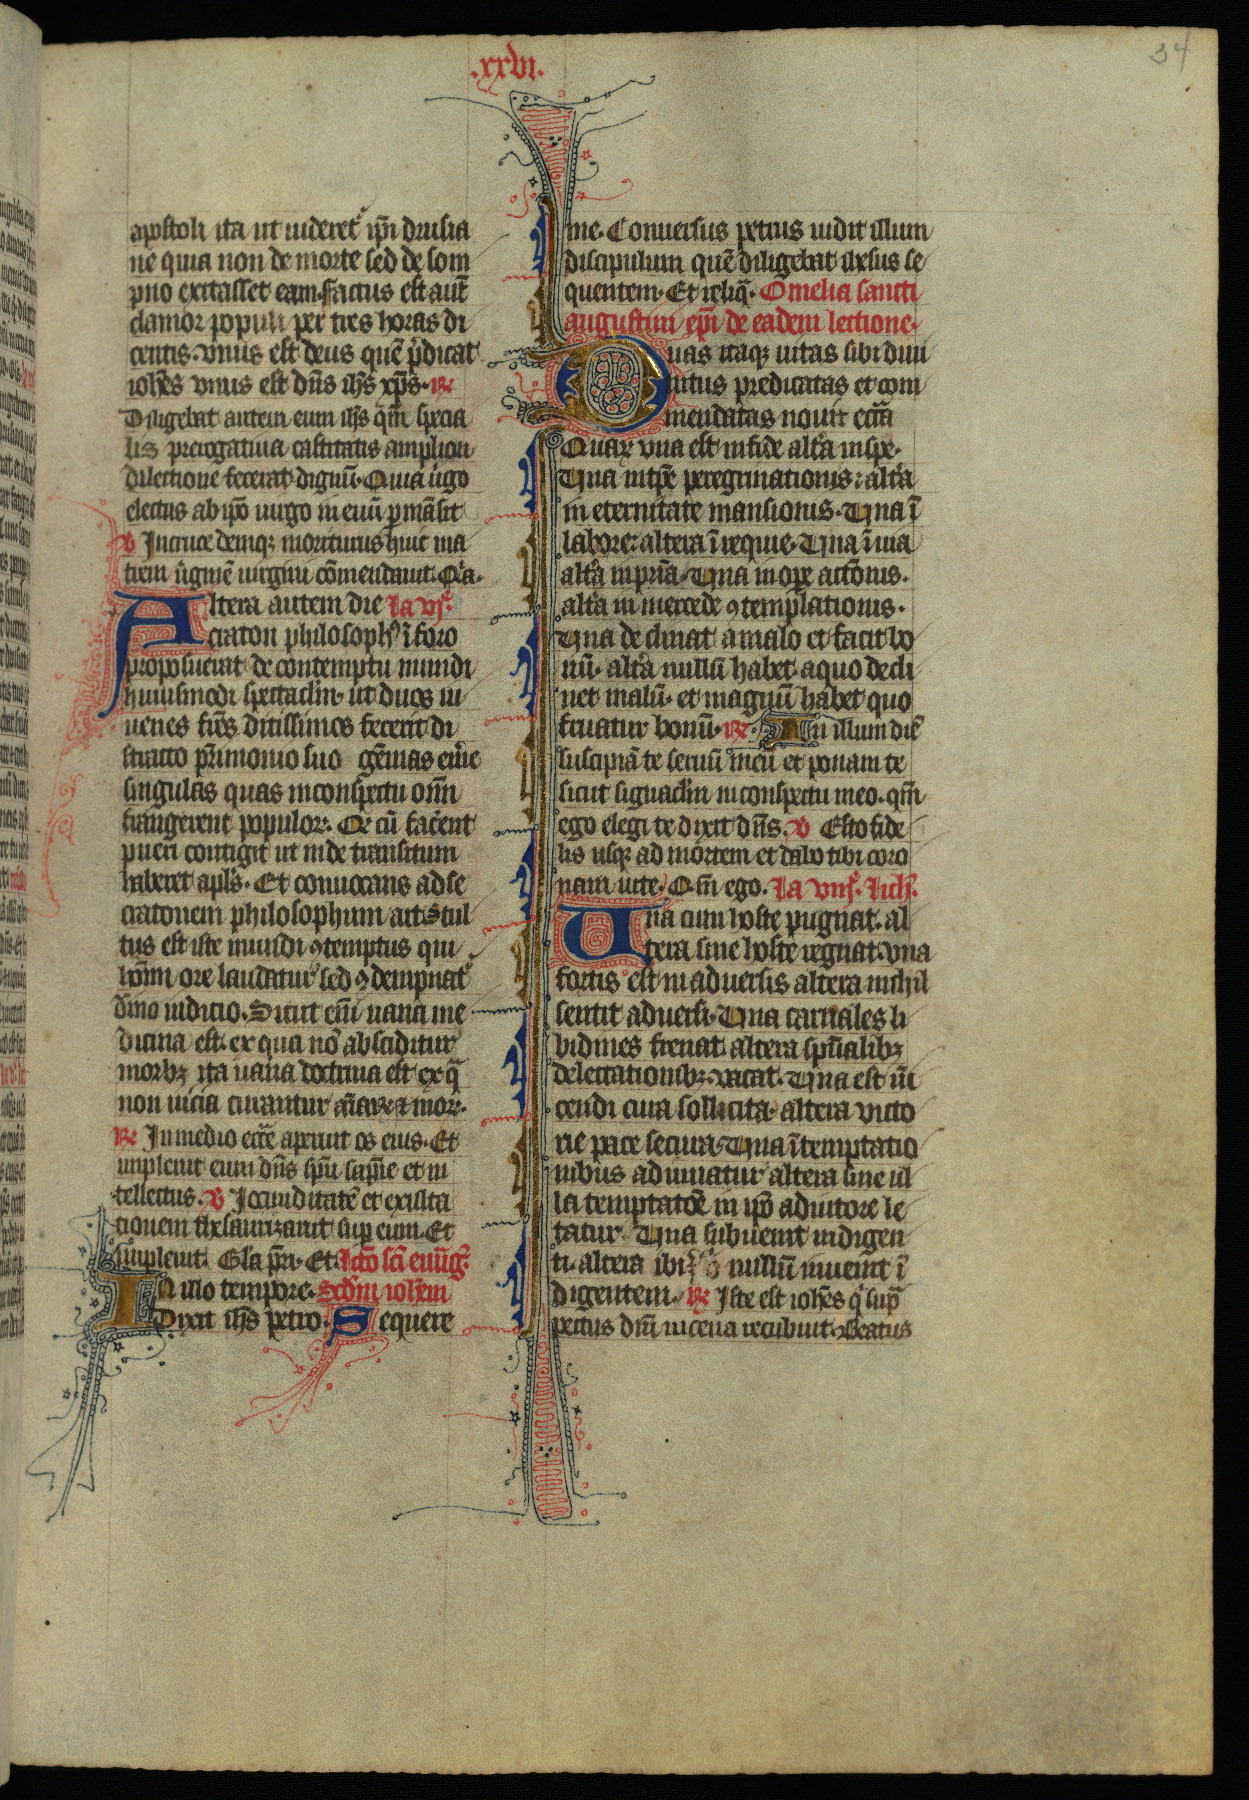 .xxvi.
34
apostoli ita ut uideret᷑ ip̄i drusia
ne quia non de morte sed de som
pno excitasset eam. factus est aut̄
clamor populi per tres horas di
centis. vnus est deus quē p̄dicat
ioh̄es vnus est dn̄s ih̄s xp̄s. R̄
Diligebat autem eum ih̄s qm̄ specia
lis prerogatiua castitatis ampliori
dilectione fecerat dignū. Quia ūgo
electus ab ip̄o uirgo in euū pmāsit
V̄ In cruce demqꝫ moriturus huic ma
trem ūginē uirgini cōmendauit. Qꝛa.
Altera autem die la vj.ͣ
craton philosoph᷒ ī foro
proposuerat de contemptu mundi
huiusmodi spectaclm̄. ut duos iu
uenes fr̄es ditissimos fecerit di
stracto pr̄imonio suo gēmas em̄e
singulas quas in conspectu om̄n
frangerent populoꝝ. Or cū fac̄ent
pueri contigit ut inde transitum
haberet apl̄s. Et conuocans ad se
cratonem philosophum ait. Stul
tus est iste mundi ꝯtemptus qui
hom̄ ore laudatur sed ꝯdempnat᷑
d̄ino iudicio. Sicut em̄ uana me
dicina est. ex qua nō absciditur
morbꝫ ita uana doctrina est ex q̄
non uicia curantur aīaꝝ ⁊ moꝝ.
R̄ In medio ecc̄e aperuit os eius. Et
impleuit eum dn̄s sp̄u sap̄ie et in
tellectus. V̄ Iocunditatē et exulta
tionem thesaurizauit sup eum. Et
impleuit. Gl̄a p̄ri. Et. Lc̄to sc̄i euūg᷑.
In illo tempore. Scd̄m ioh̄em
Dixit ih̄s petro. Sequere
me. Conuersus petrus uidit illum
discipulum quē diligebat ihesus se
quentem. Et reliq̄. Omelia sancti
augustini ep̄i de eadem lectione.
Duas itaqꝫ uitas sibi diui
nitus predicatas et com
mendatas nouit ecc̄a
Quaꝝ vna est in fide alt̄a in spe.
Una in tp̄e peregrinationis: alt̄a
in eternitate mansionis. Una ī
labore: altera ī requie. Una ī uia
alt̄a in pr̄ia. Una in ope actōnis.
alt̄a in mercede ꝯtemplationis.
Una declinat a malo et facit bo
nū. alt̄a nullū habet a quo decli
net malū. et magnū habet quo
fruatur bonū. R̄. In illum diē
suscipiā te seruū meū et ponam te
sicut signaclm̄ in conspectu meo. qm̄
ego elegi te dixit dn̄s. V̄ Esto fide
lis usqꝫ ad mortem et dabo tibi coro
nam uite. Qm̄ ego. la viijͣ. Iuch᷑.
Una cum hoste pugnat. al
tera sine hoste regnat. vna
fortis est in aduersis altera nichil
sentit aduersi. Una carnales li
bidines frenat. altera sp̄ualibꝫ
delectationibꝫ. vacat. Una est ūi
cendi cura sollicita. altera victo
rie pace secura. Una ī temptatio
nibus adiuuatur altera sine ul
la temptatōe in ip̄o adiutore le
tatur. Una subuenit indigen
ti. altera ibi ÷ ubi nullū inuenit ī
digentem. R̄ Iste est ioh̄es q̄ sup
pectus dn̄i in cena recubuit. Beatus